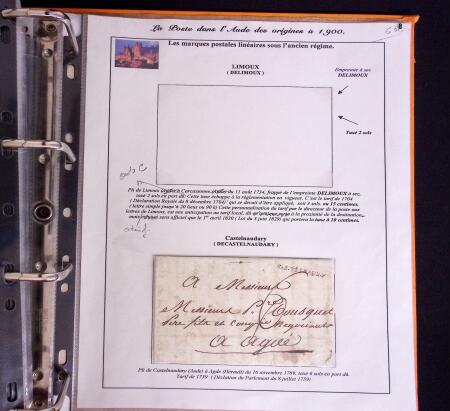 La Poste dans l'Aude des origines à 1,900.
Les marques postales linéaires sous l'ancien régime.
LIMOUX
( DELIMOUX )
Empreinte à sec
DELIMOUX
Taxé 2 sols
Pli de Limoux à Carcassonne du 11 août 1734, frappé de l'empreinte DELIMOUX à sec,
taxé 2 sols en port dû. Cette taxe échappe à la réglementation en vigueur. C'est le tarif de 1704
( Déclaration Royale du 8 décembre 1704) qui se devait d'être appliqué, soit 3 sols, ou 15 centimes.
( lettre simple jusqu'à 20 lieux ou 90 k) Cette personnalisation du tarif par le directeur de la poste aux
lettres de Limoux, est une anticipation au tarif local, dû à la proximité de la destination,
mais sera officiel que le 1er avril 1830 ( Loi du 3 juin 1829) qui portera la taxe à 10 centimes.
Castelnaudary
( DECASTELNAUDARY )
A Messieurs
Messieurs P. Bousquet
Père fils et comp Negotiants
A Agde
Pli de Castelnaudary (Aude) à Agde (Hérault) du 16 novembre 1789, taxé 6 sols en port dû.
Tarif de 1759 ( Déclaration du Parlement du 8 juillet 1759)